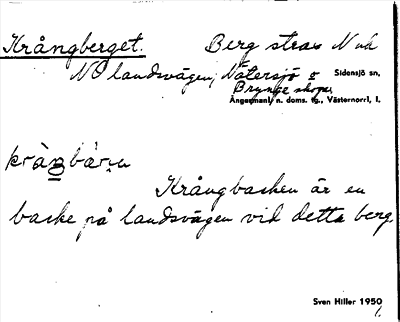 Krångberget. Berg strax N och
NO landsvägen, Nätersjö o Sidensjö sn,
Brynge skogar,
Ångermanl. n. doms. tg., Västernorrl. l.
Krångbacken är en
backe på landsvägen vid detta berg
Sven Hiller 1950
1.